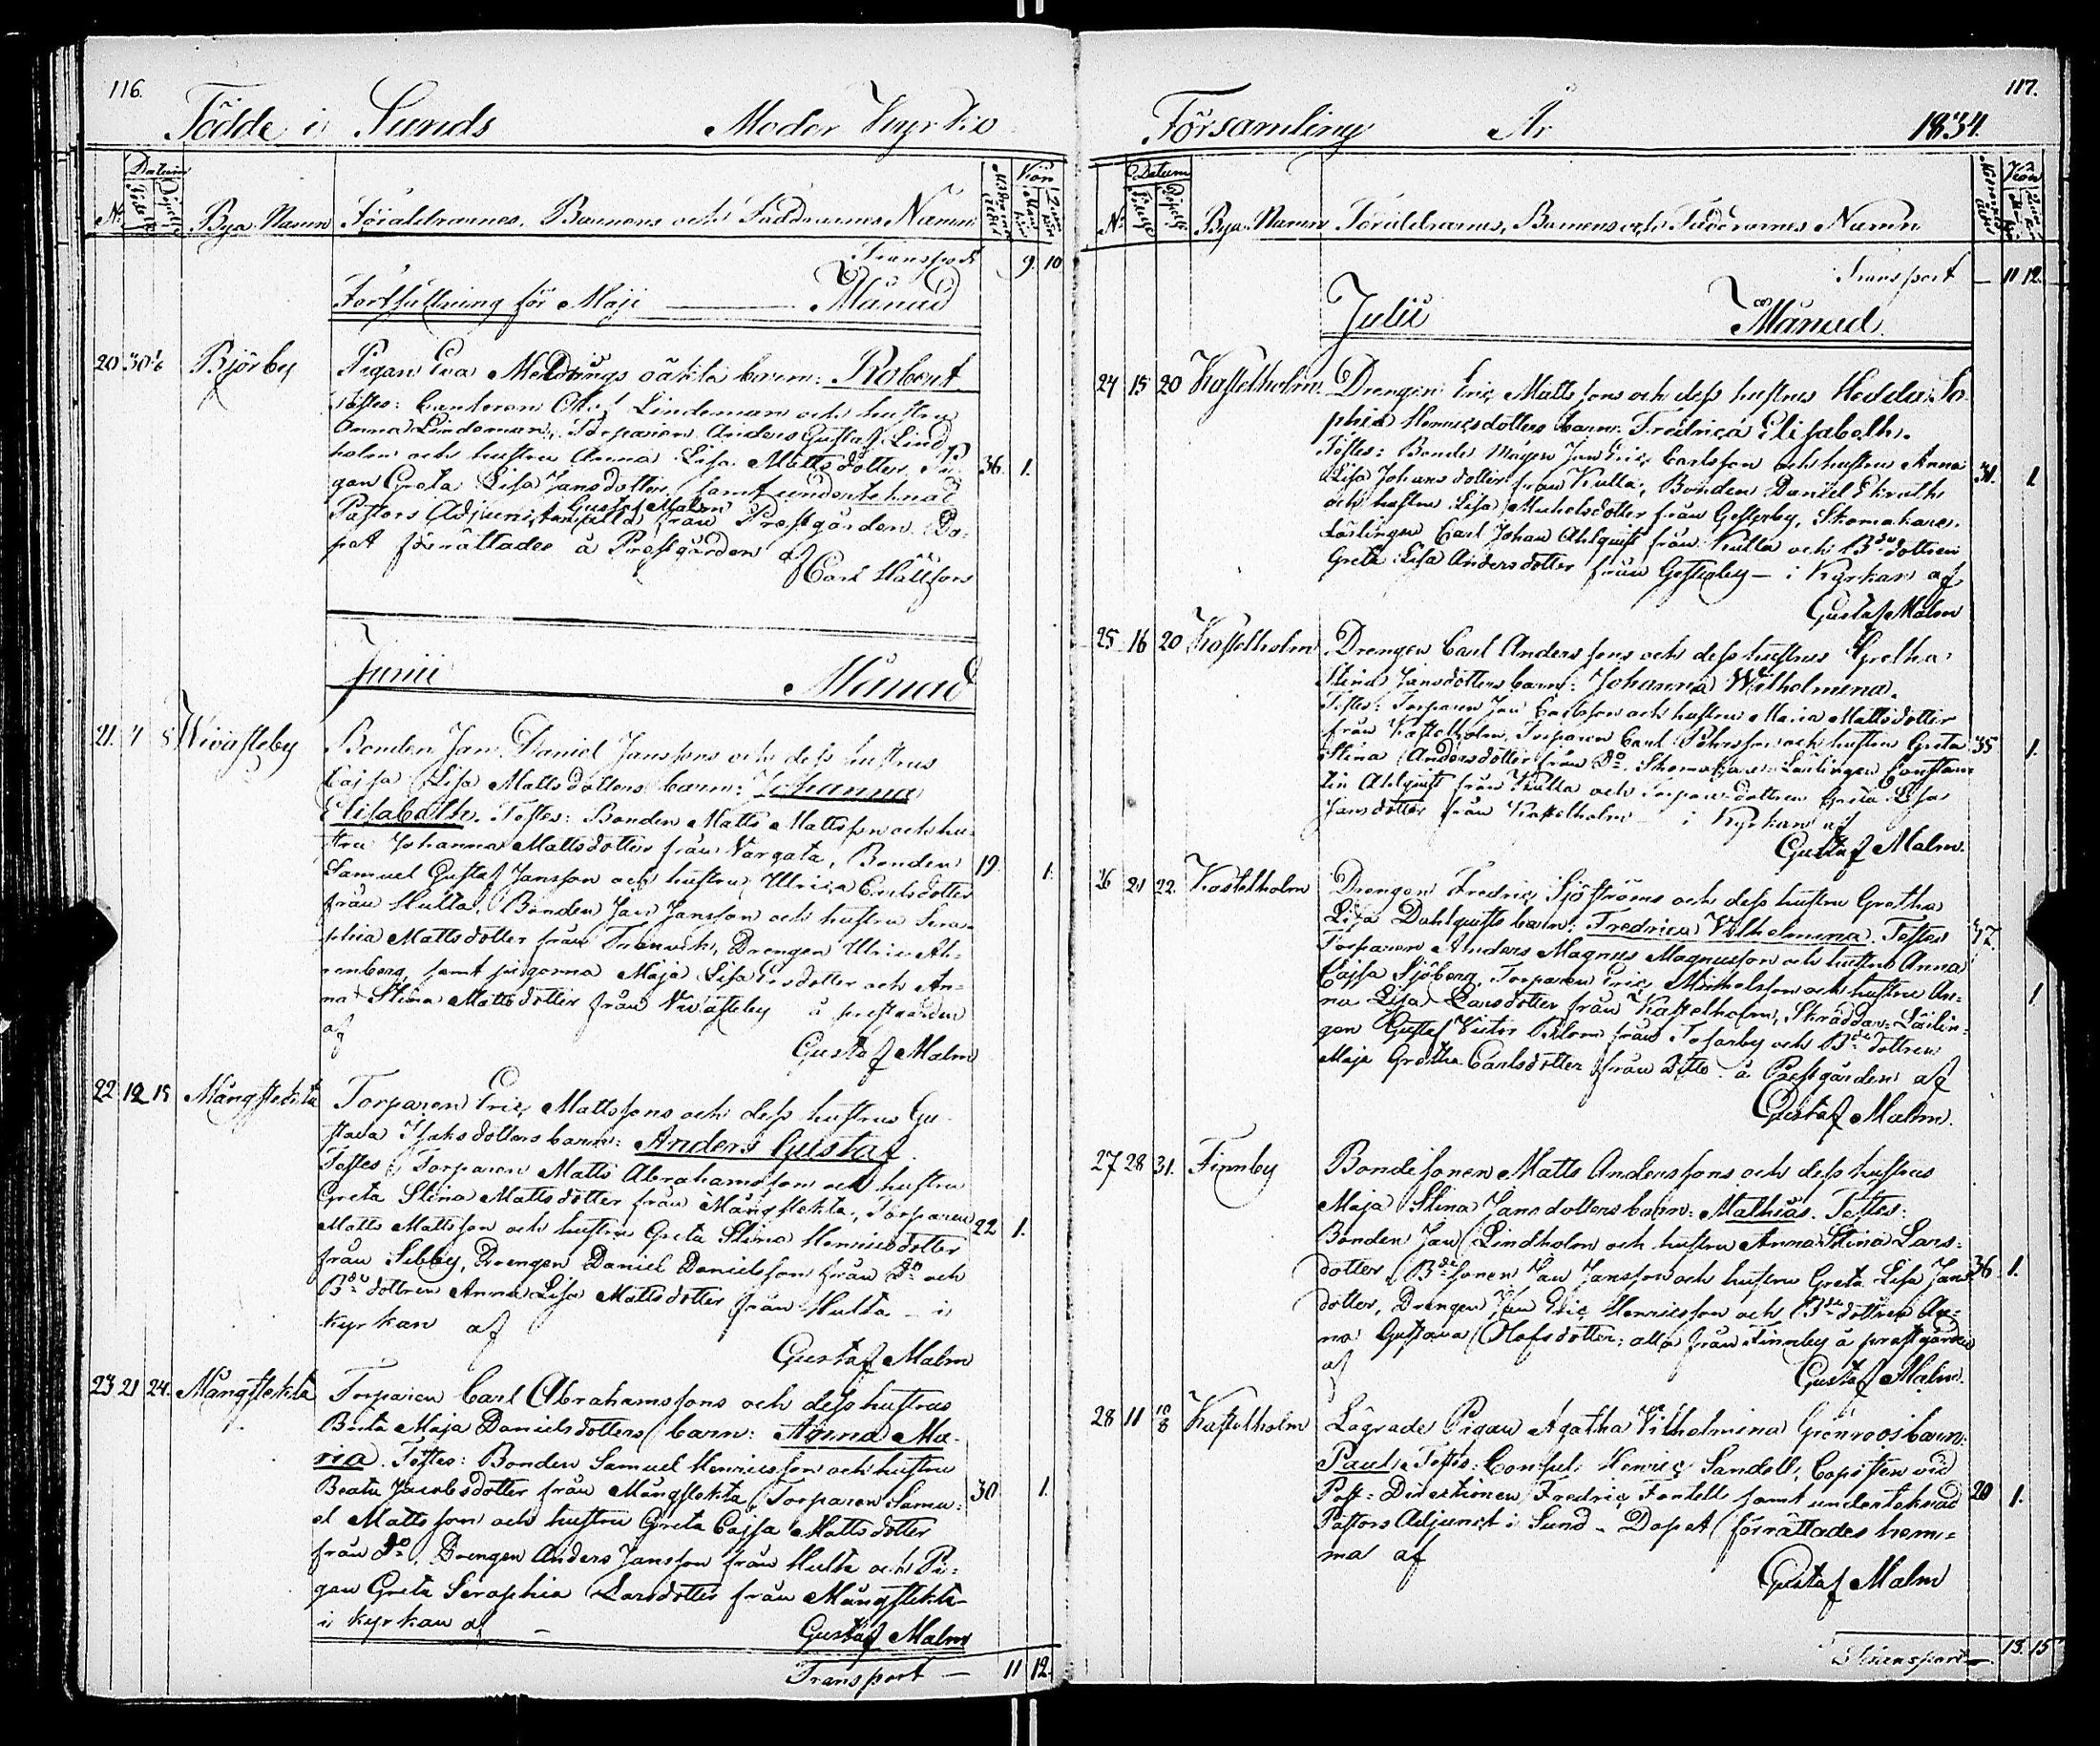 116.
Födde i Sunds Moder Kyrko
No
Datum
Bya Namn
Föräldrarnes, Barnens och Faddrarnes Namn
Kön
Transport 9. 10
Fortsättning för Maji Månad
20 30 1/6 Björby Pigan Eva Meldings oäkta barn: Robert
Testes: Cantoren Lindeman och hustru
Anna Lindeman, Torparen Anders Gustaf Lind-
holm och hustru Anna Lisa Mattsdotter, Pi-
gan Greta Lisa Jansdotter samt undertecknad 36. 1.
Gustaf Malm
Pastors Adjunct från Prestgården. Do-
pet förrättades å Prestgården af
Carl Hällfors
Junii Månad
21. 7 8 Wivasteby Bonden Jan Daniel Janssons och dess hustrus
Cajsa Lisa Mattsdotters barn: Johanna
Elisabeth. Testes: Bonden Matts Mattsson och hu-
stru Johanna Mattsdotter från Vargata, Bonden 19. 1.
Samuel Gustaf Jansson och hustru Ulrica Carlsdotter
från Hulta, Bonden Jan Jansson och hustru Sera-
phia Mattsdotter från Träsvik, Drengen Ulric Ah-
renberg, samt pigorna Maja Lisa Ersdotter och An-
na Stina Mattsdotter från Wivasteby å prestgården
af
Gustaf Malm
22. 12 15 Mångstekta Torparen Eric Mattssons och dess hustrus Gu-
stava Isaksdotters barn: Anders Gustaf.
Testes: Torparen Matts Abrahamsson och hustru
Greta Stina Mattsdotter från Mångstekta, Torparen
Matts Mattsson och hustru Greta Stina Henricsdotter 22 1.
från Sibby, Drengen Daniel Danielsson från Do och
Bde dottren Anna Lisa Mattsdotter från Hulta - i
kyrkan af
Gustaf Malm
23 21 24. Mångstekta Torparen Carl Abrahamssons och dess hustrus
Brita Maja Danielsdotters barn: Anna Ma-
ria. Testes: Bonden Samuel Henricsson och hustru
Beata Jacobsdotter från Mångstekta, Torparen Samu- 30 1.
el Mattsson och hustru Greta Cajsa Mattsdotter
från Do, Drengen Anders Jansson från Hulta och Pi-
gan Greta Seraphia Larsdotter från Mångstekta
i kyrkan af
Gustaf Malm
Transport — 11 12.
117.
Församling År 1834.
No
Datum
Bya Namn
Föräldrarnes, Barnens och Faddrarnes Namn
Kön
Transport — 11 12.
Julii Månad
24 15 20 Kastelholm Drengen Eric Mattssons och dess hustrus Hedda So-
phia Henricsdotters barn: Fredrica Elisabeth.
Testes: Bonde Mågen Jan Eric Carlsson och hustru Anna
Lisa Johansdotter från Kulla, Bonden Daniel Ekroth 31. 1
och hustru Lisa Michelsdotter från Gesterby, Skomakare
Lärlingen Carl Johan Ahlquist från Kulla och Bde dottren
Greta Lisa Andersdotter från Gesterby — i Kyrkan af
Gustaf Malm
25 16 20 Kastelholm Drengen Carl Anderssons och dess hustrus Gretha
Stina Jansdotters barn: Johanna Wilhelmina.
Testes: Torparen Jan Carlsson och hustru Maria Mattsdotter
från Kastelholm, Torparen Carl Pehrsson och hustru Greta 35 1.
Stina Andersdotter från Do, Skomakare-Lärlingen Constan-
tin Ahlquist från Kulla och Torpare-dottren Greta Lisa
Jansdotter från Kastelholm — i Kyrkan af
Gustaf Malm.
26 21 22. Kastelholm Drengen Fredric Sjöströms och dess hustru Gretha
Lisa Dahlquists barn: Fredrica Vilhelmina. Testes
Torparen Anders Magnus Magnusson och hustru Anna
Cajsa Sjöberg, Torparen Eric Michelsson och hustru An-
na Lisa Larsdotter från Kastelholm, Skräddare-Lärlin- 1
gen Gustaf Victor Blom från Tosarby och Bde dottren
Maja Gretha Carlsdotter från ditto å Prestgården af
Gustaf Malm.
27 28 31. Finnby Bondesonen Matts Anderssons och dess hustrus
Maja Stina Jansdotters barn: Mathias. Testes:
Bonden Jan Lindholm och hustru Anna Stina Lars-
dotter, Bde sonen Jan Jansson och hustru Greta Lisa Jans 36 1.
dotter, Drengen Jan Eric Henricsson och Bde dottren An-
na Gustava Olofsdotter: alla från Finnby å prestgården
af
Gustaf Malm.
28 11 10/8 Kastelholm Lägrade Pigan Agatha Vilhelmina Grönroos barn:
Paul. Testes: Consul Henric Sandell, Copisten vid
Post-Directionen Fredric Fontell samt undertecknad 20 1.
Pastors Adjunct i Sund - Dopet förrättades hem-
ma af
Gustaf Malm
Transport — 13. 15